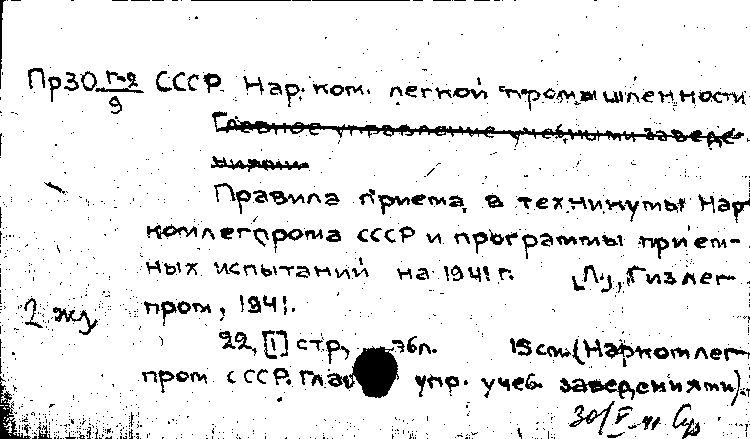 Пр30 Г-2/9 СССР. Нар. ком. легкой промышленности
Главное управление учебными заведе-
ниями
Правила приема в техникумы Нар-
комлегпрома СССР и программы прием-
ных испытаний на 1941 г. [Л.], Гизлег-
пром, 1941.
2 экз
22, [1] стр, табл. 15 см. (Наркомлег-
пром СССР. Глав упр. учеб. заведениями).
30/V-41